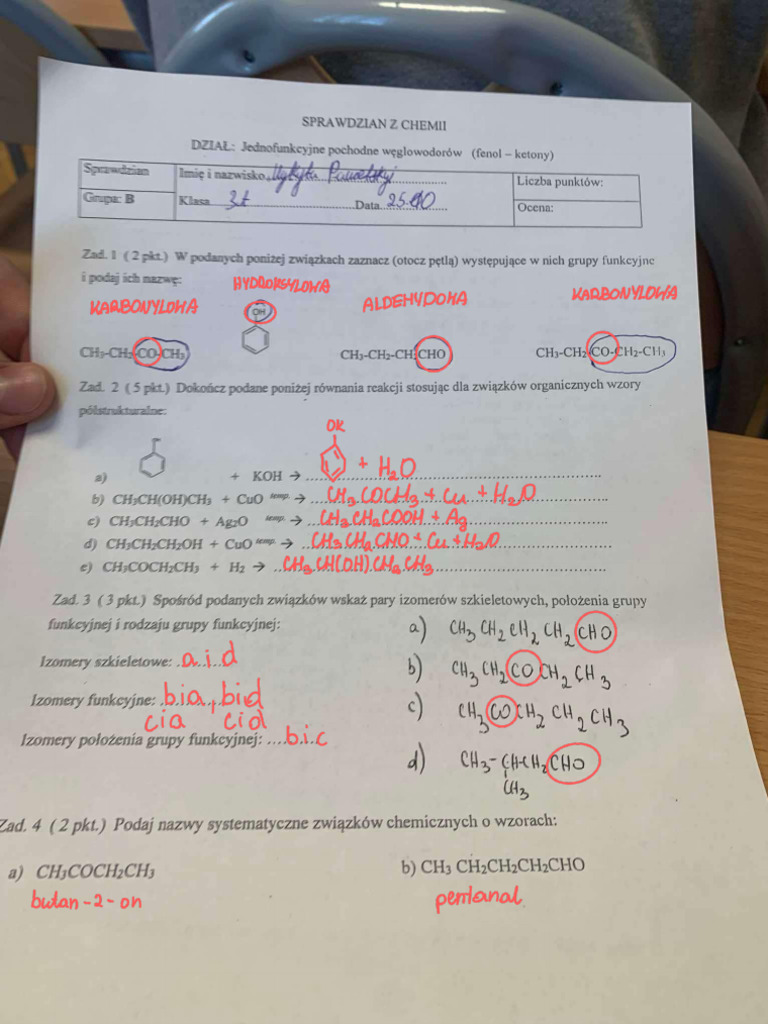 SPRAWDZIAN Z CHEMII
DZIAŁ: Jednofunkcyjne pochodne węglowodorów (fenol – ketony)
Sprawdzian
Imię i nazwisko
Liczba punktów:
Grupa: B
Klasa 3t Data 25.10
Ocena:
Zad. 1 ( 2 pkt.) W podanych poniżej związkach zaznacz (otocz pętlą) występujące w nich grupy funkcyjne
i podaj ich nazwę:
KARBONYLOWA HYDROKSYLOWA ALDEHYDOWA KARBONYLOWA
OH
CH₃-CH₂-CO-CH₃ CH₃-CH₂-CH₂CHO CH₃-CH₂-CO-CH₂-CH₃
Zad. 2 ( 5 pkt.) Dokończ podane poniżej równania reakcji stosując dla związków organicznych wzory
półstrukturalne:
OK
a) + KOH → + H₂O
b) CH₃CH(OH)CH₃ + CuO temp. → CH₃COCH₃ + Cu + H₂O
c) CH₃CH₂CHO + Ag₂O temp. → CH₃CH₂COOH + Ag
d) CH₃CH₂CH₂OH + CuO temp. → CH₃CH₂CHO + Cu + H₂O
e) CH₃COCH₂CH₃ + H₂ → CH₃CH(OH)CH₂CH₃
Zad. 3 ( 3 pkt.) Spośród podanych związków wskaż pary izomerów szkieletowych, położenia grupy
funkcyjnej i rodzaju grupy funkcyjnej:
a) CH₃CH₂CH₂CH₂CHO
Izomery szkieletowe: a i d
b) CH₃CH₂COCH₂CH₃
Izomery funkcyjne: b i a, b i d
c i a c i d
c) CH₃COCH₂CH₂CH₃
Izomery położenia grupy funkcyjnej: b i c
d) CH₃-CH-CH₂CHO
CH₃
Zad. 4 ( 2 pkt.) Podaj nazwy systematyczne związków chemicznych o wzorach:
a) CH₃COCH₂CH₃ b) CH₃ CH₂CH₂CH₂CHO
butan-2-on pentanal